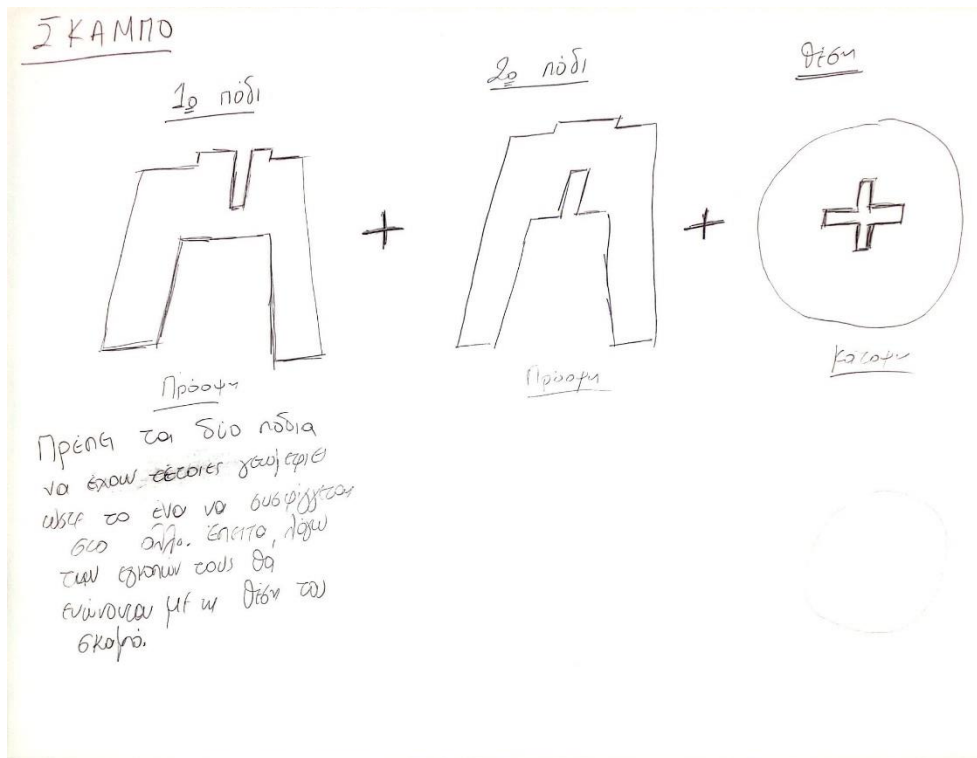 ΣΚΑΜΠΟ
1ο πόδι
2ο πόδι
θέση
Πρόοψη
Πρόοψη
Κάτοψη
Πρέπει τα δύο πόδια
να έχουν τέτοιες γεωμετρίες
ώστε το ένα να συσφίγγεται
στο άλλο. Έπειτα, λόγω
των εγκοπών τους θα
ενώνονται με τη θέση του
σκαμπό.